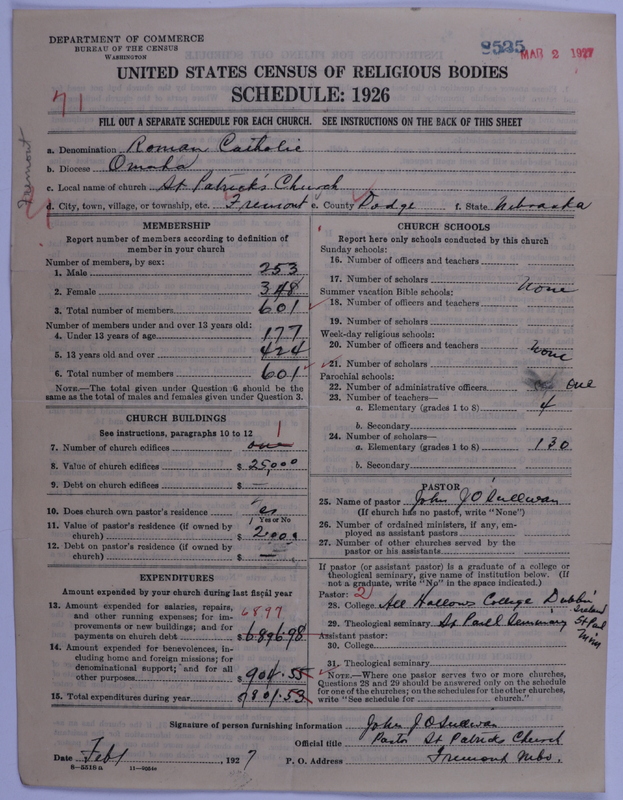 DEPARTMENT OF COMMERCE
BUREAU OF THE CENSUS
WASHINGTON
8525
MAR 2 1927
UNITED STATES CENSUS OF RELIGIOUS BODIES
SCHEDULE: 1926
71
FILL OUT A SEPARATE SCHEDULE FOR EACH CHURCH. SEE INSTRUCTIONS ON THE BACK OF THIS SHEET
Fremont
a. Denomination Roman Catholic
b. Diocese Omaha
c. Local name of church St Patrick's Church
d. City, town, village, or township, etc. Fremont e. County Dodge f. State Nebraska
MEMBERSHIP
Report number of members according to definition of
member in your church
Number of members, by sex:
1. Male 253
2. Female 348
3. Total number of members 601
Number of members under and over 13 years old:
4. Under 13 years of age 177
5. 13 years old and over 424
6. Total number of members 601
NOTE.—The total given under Question 6 should be the
same as the total of males and females given under Question 3.
CHURCH BUILDINGS
See instructions, paragraphs 10 to 12
7. Number of church edifices one 1
8. Value of church edifices $ 25,000
9. Debt on church edifices $ —
10. Does church own pastor's residence yes
Yes or No
11. Value of pastor's residence (if owned by
church) $ 2000
12. Debt on pastor's residence (if owned by
church) $ —
EXPENDITURES
Amount expended by your church during last fiscal year
13. Amount expended for salaries, repairs,
and other running expenses; for im-
provements or new building; and for
payments on church debt $ 6896.98
6897
14. Amount expended for benevolences, in-
cluding home and foreign missions; for
denominational support; and for all
other purposes $ 904.55
15. Total expenditures during year $ 7801.53
CHURCH SCHOOLS
Report here only schools conducted by this church
Sunday schools:
16. Number of officers and teachers
17. Number of scholars None
Summer vacation Bible schools:
18. Number of officers and teachers
19. Number of scholars
Week-day religious schools:
20. Number of officers and teachers None
21. Number of scholars
Parochial schools:
22. Number of administrative officers one
23. Number of teachers—
a. Elementary (grades 1 to 8) 4
b. Secondary
24. Number of scholars—
a. Elementary (grades 1 to 8) 130
b. Secondary
PASTOR
25. Name of pastor John J O'Sullivan
(If church has no pastor, write "None")
26. Number of ordained ministers, if any, em-
ployed as assistant pastors
27. Number of other churches served by the
pastor or his assistants
If pastor (or assistant pastor) is a graduate of a college or
theological seminary, give name of institution below. (If
not a graduate, write "No" in the space indicated.)
Pastor: 2
28. College All Hallows College Dublin Ireland
29. Theological seminary St Paul Seminary St Paul Minn
Assistant pastor:
30. College
31. Theological seminary
NOTE.—Where one pastor serves two or more churches,
Questions 28 and 29 should be answered only on the schedule
for one of the churches; on the schedules for the other churches,
write "See schedule for church."
Signature of person furnishing information John J O'Sullivan
Official title Pastor St Patricks Church
Date Feb 1 1927 P. O. Address Fremont Nebr.
8—5318 a